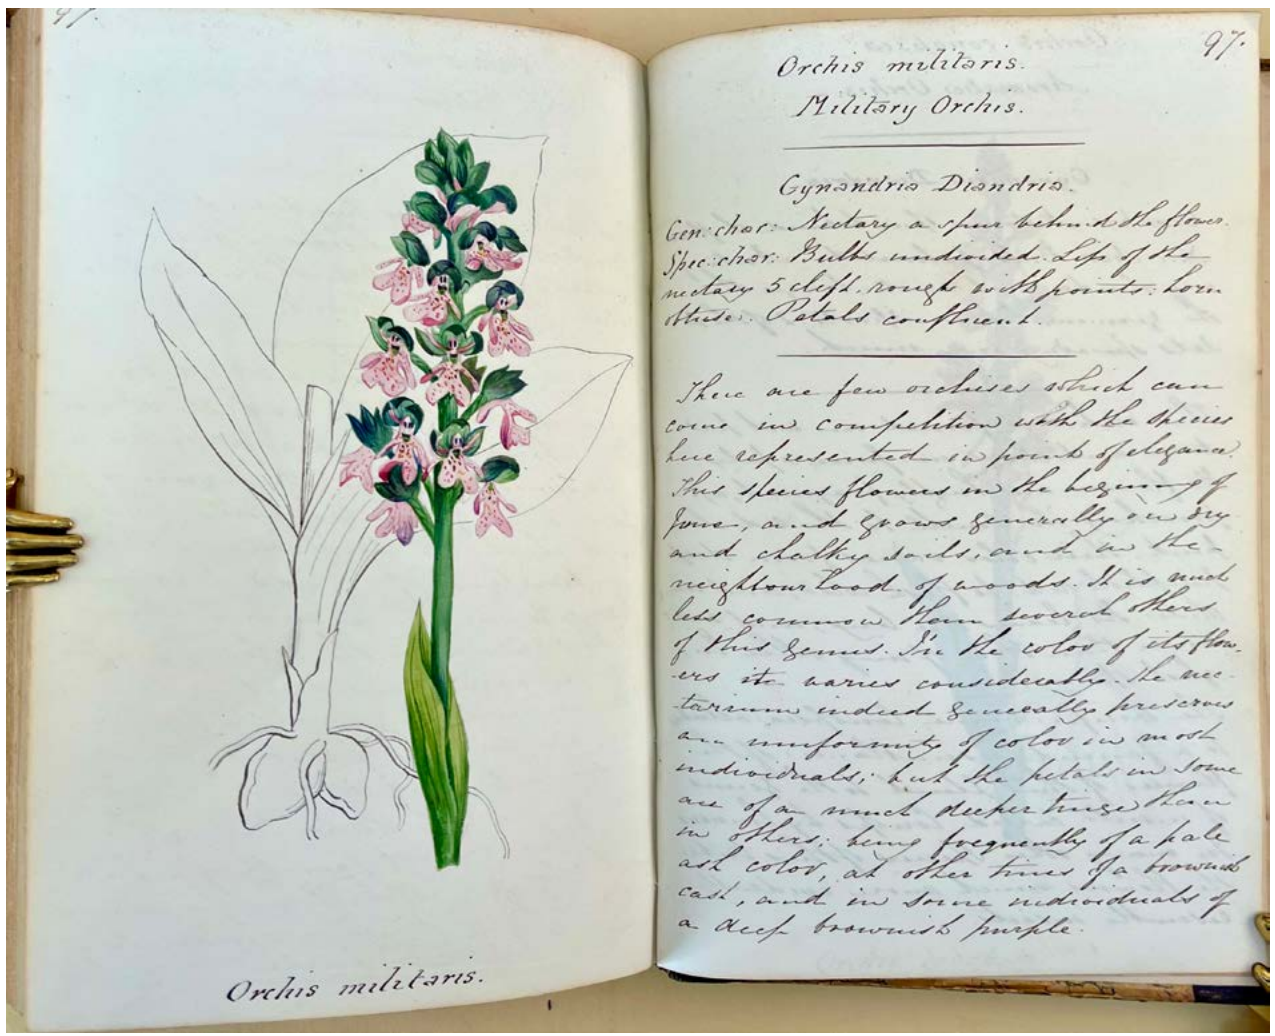 97.
Orchis militaris.
97.
Orchis militaris.
Military Orchis.
Gynandria Diandria.
Gen: char: Nectary a spur behind the flower.
Spec: char: Bulbs undivided. Lip of the
nectary 5 cleft, rough with points: horn
obtuse. Petals confluent.
There are few orchises which can
come in competition with the species
here represented in point of elegance.
This species flowers in the begining of
June, and grows generally on dry
and chalky soils, and in the
neighbourhood of woods. It is much
less common than several others
of this genus. In the color of its flow-
ers it varies considerably. The nec-
tarium indeed generally preserves
an uniformity of color in most
individuals; but the petals in some
are of a much deeper tinge than
in others; being frequently of a pale
ash color, at other times of a brownish
cast, and in some individuals of
a deep brownish purple.